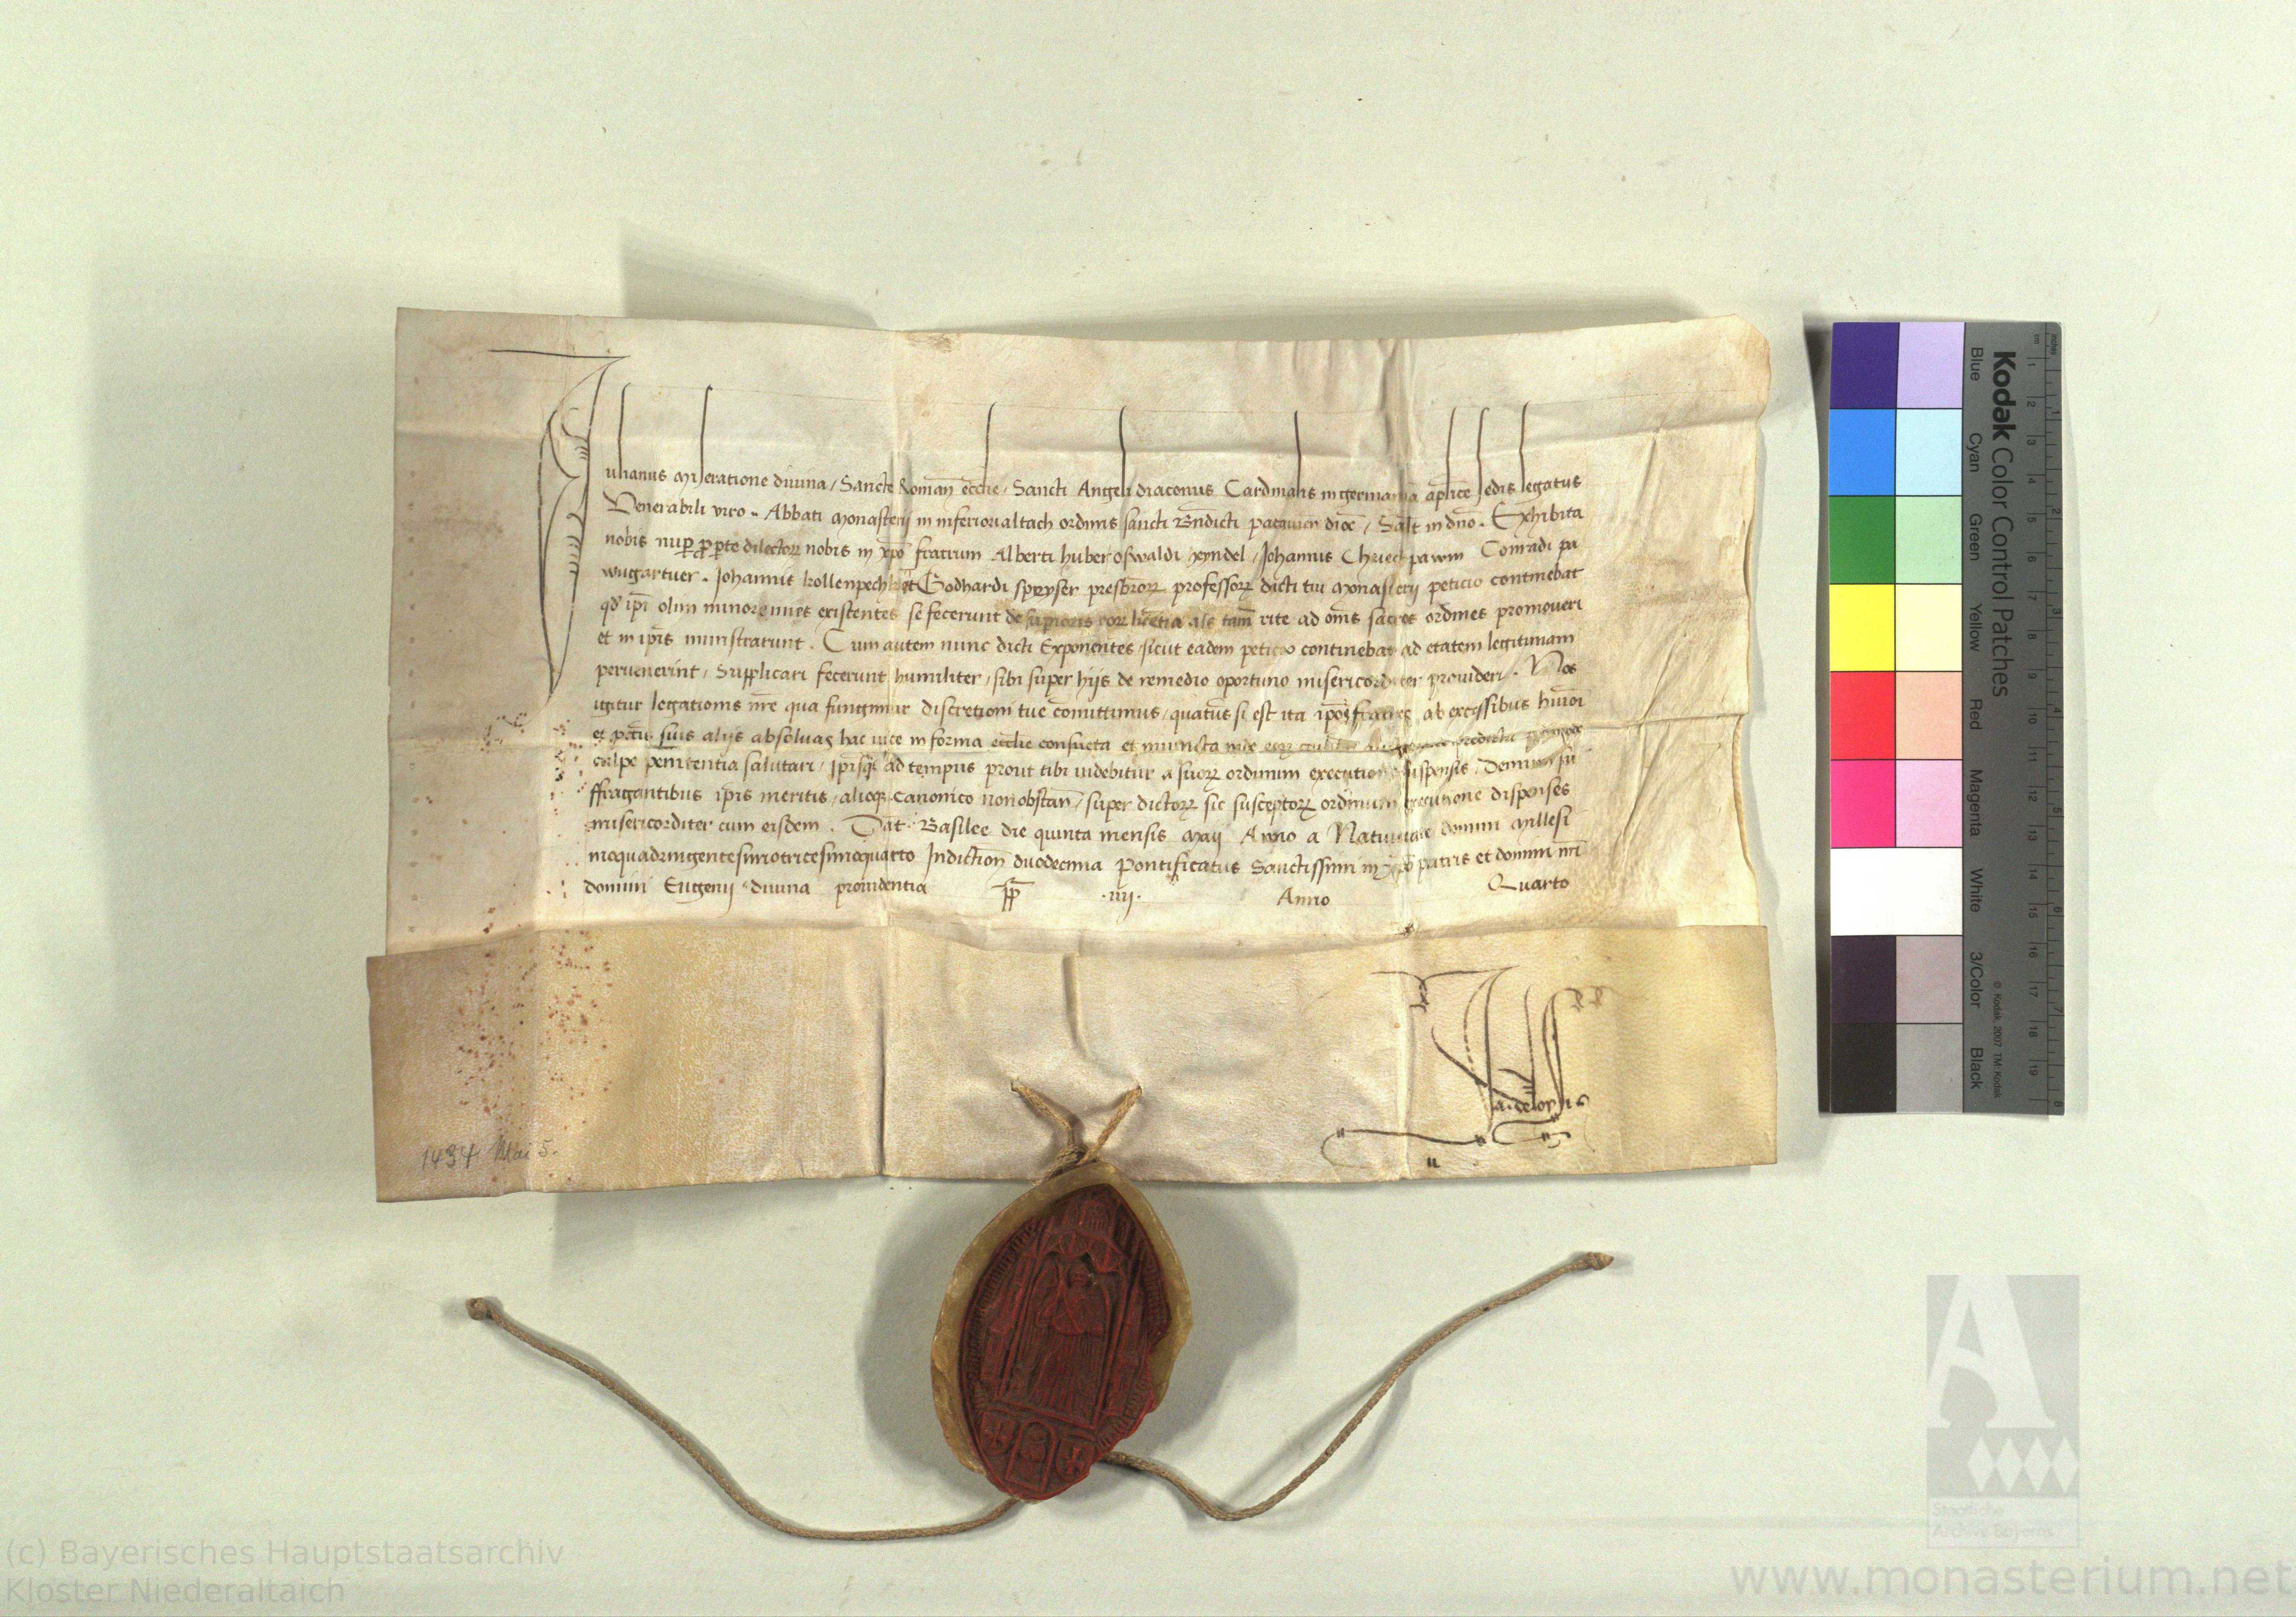 Iulianus Miseratione diuina / Sancte Roman̄ eccl̄ie / Sancti Angeli diaconus Cardinalis in germania apl̄ice sedis legatus
Venerabili viro .. Abbati Monasterij in inferiorialtach ordinis sancti Bn̄dicti patauien̄ dioc̄ / Sal̄t in dn̄o . Exhibita
nobis nup̱ ꝓ p̱te dilectoꝝ nobis in xp̄o fratrum Alberti huber oswaldi zeyndel / Johannis Chriech pawm Conradi pa
wngartner . Johannis kollenpech et Godhardi spryser presbr̄oꝝ professoꝝ dicti tui Monasterij peticio continebat
qd̄ ip̄i olim minorennes existentes se fecerunt de suprioris eoꝝ licētia als tam̄ rite ad om̄s sacros ordines promoueri
et in ip̄is ministrarunt . Cum autem nunc dicti Exponentes / sicut eadem peticio continebat ad etatem legitimam
peruenerint / Supplicari fecerunt humiliter / sibi super hijs de remedio oportuno misericorditer prouideri . Nos
igitur legationis nr̄e qua fungimur discretioni tue com̄ittimus / quatin̄s si est ita ip̄os fratres ab excessibus hmōi
et pctis suis alijs absoluas hac uice in forma eccl̄ie consueta et iniuncta inde eoꝝ cuilibet
culpe penitentia salutari / Ip̄isq̨ ad tempus prout tibi uidebitur a suoꝝ ordinum executione suspensis / Demum su
ffragantibus ip̄is meritis / alioq̨ canonico non obstan̄ / super dictoꝝ sic susceptoꝝ ordinum executione dispenses
misericorditer cum eisdem . Dat̄ Basilee die quinta mensis Maij Anno a Natiuitate domini Millesi
moquadringentesimotricesimoquarto Indiction̄ duodecima Pontificatus Sanctissimi in xp̄o patris et domini nr̄i
domini Eugenij diuina prouidentia pp̄ .iiij. Anno Quarto
1434 Mai 5.
Kodak Color Control Patches
Blue Cyan Green Yellow Red Magenta White 3/Color Black
© Kodak, 2007 TM: Kodak
cm 1 2 3 4 5 6 7 8 9 10 11 12 13 14 15 16 17 18 19
inches 1 2 3 4 5 6 7 8
A
Staatliche
Archive Bayerns
(c) Bayerisches Hauptstaatsarchiv
Kloster Niederaltaich
www.monasterium.net